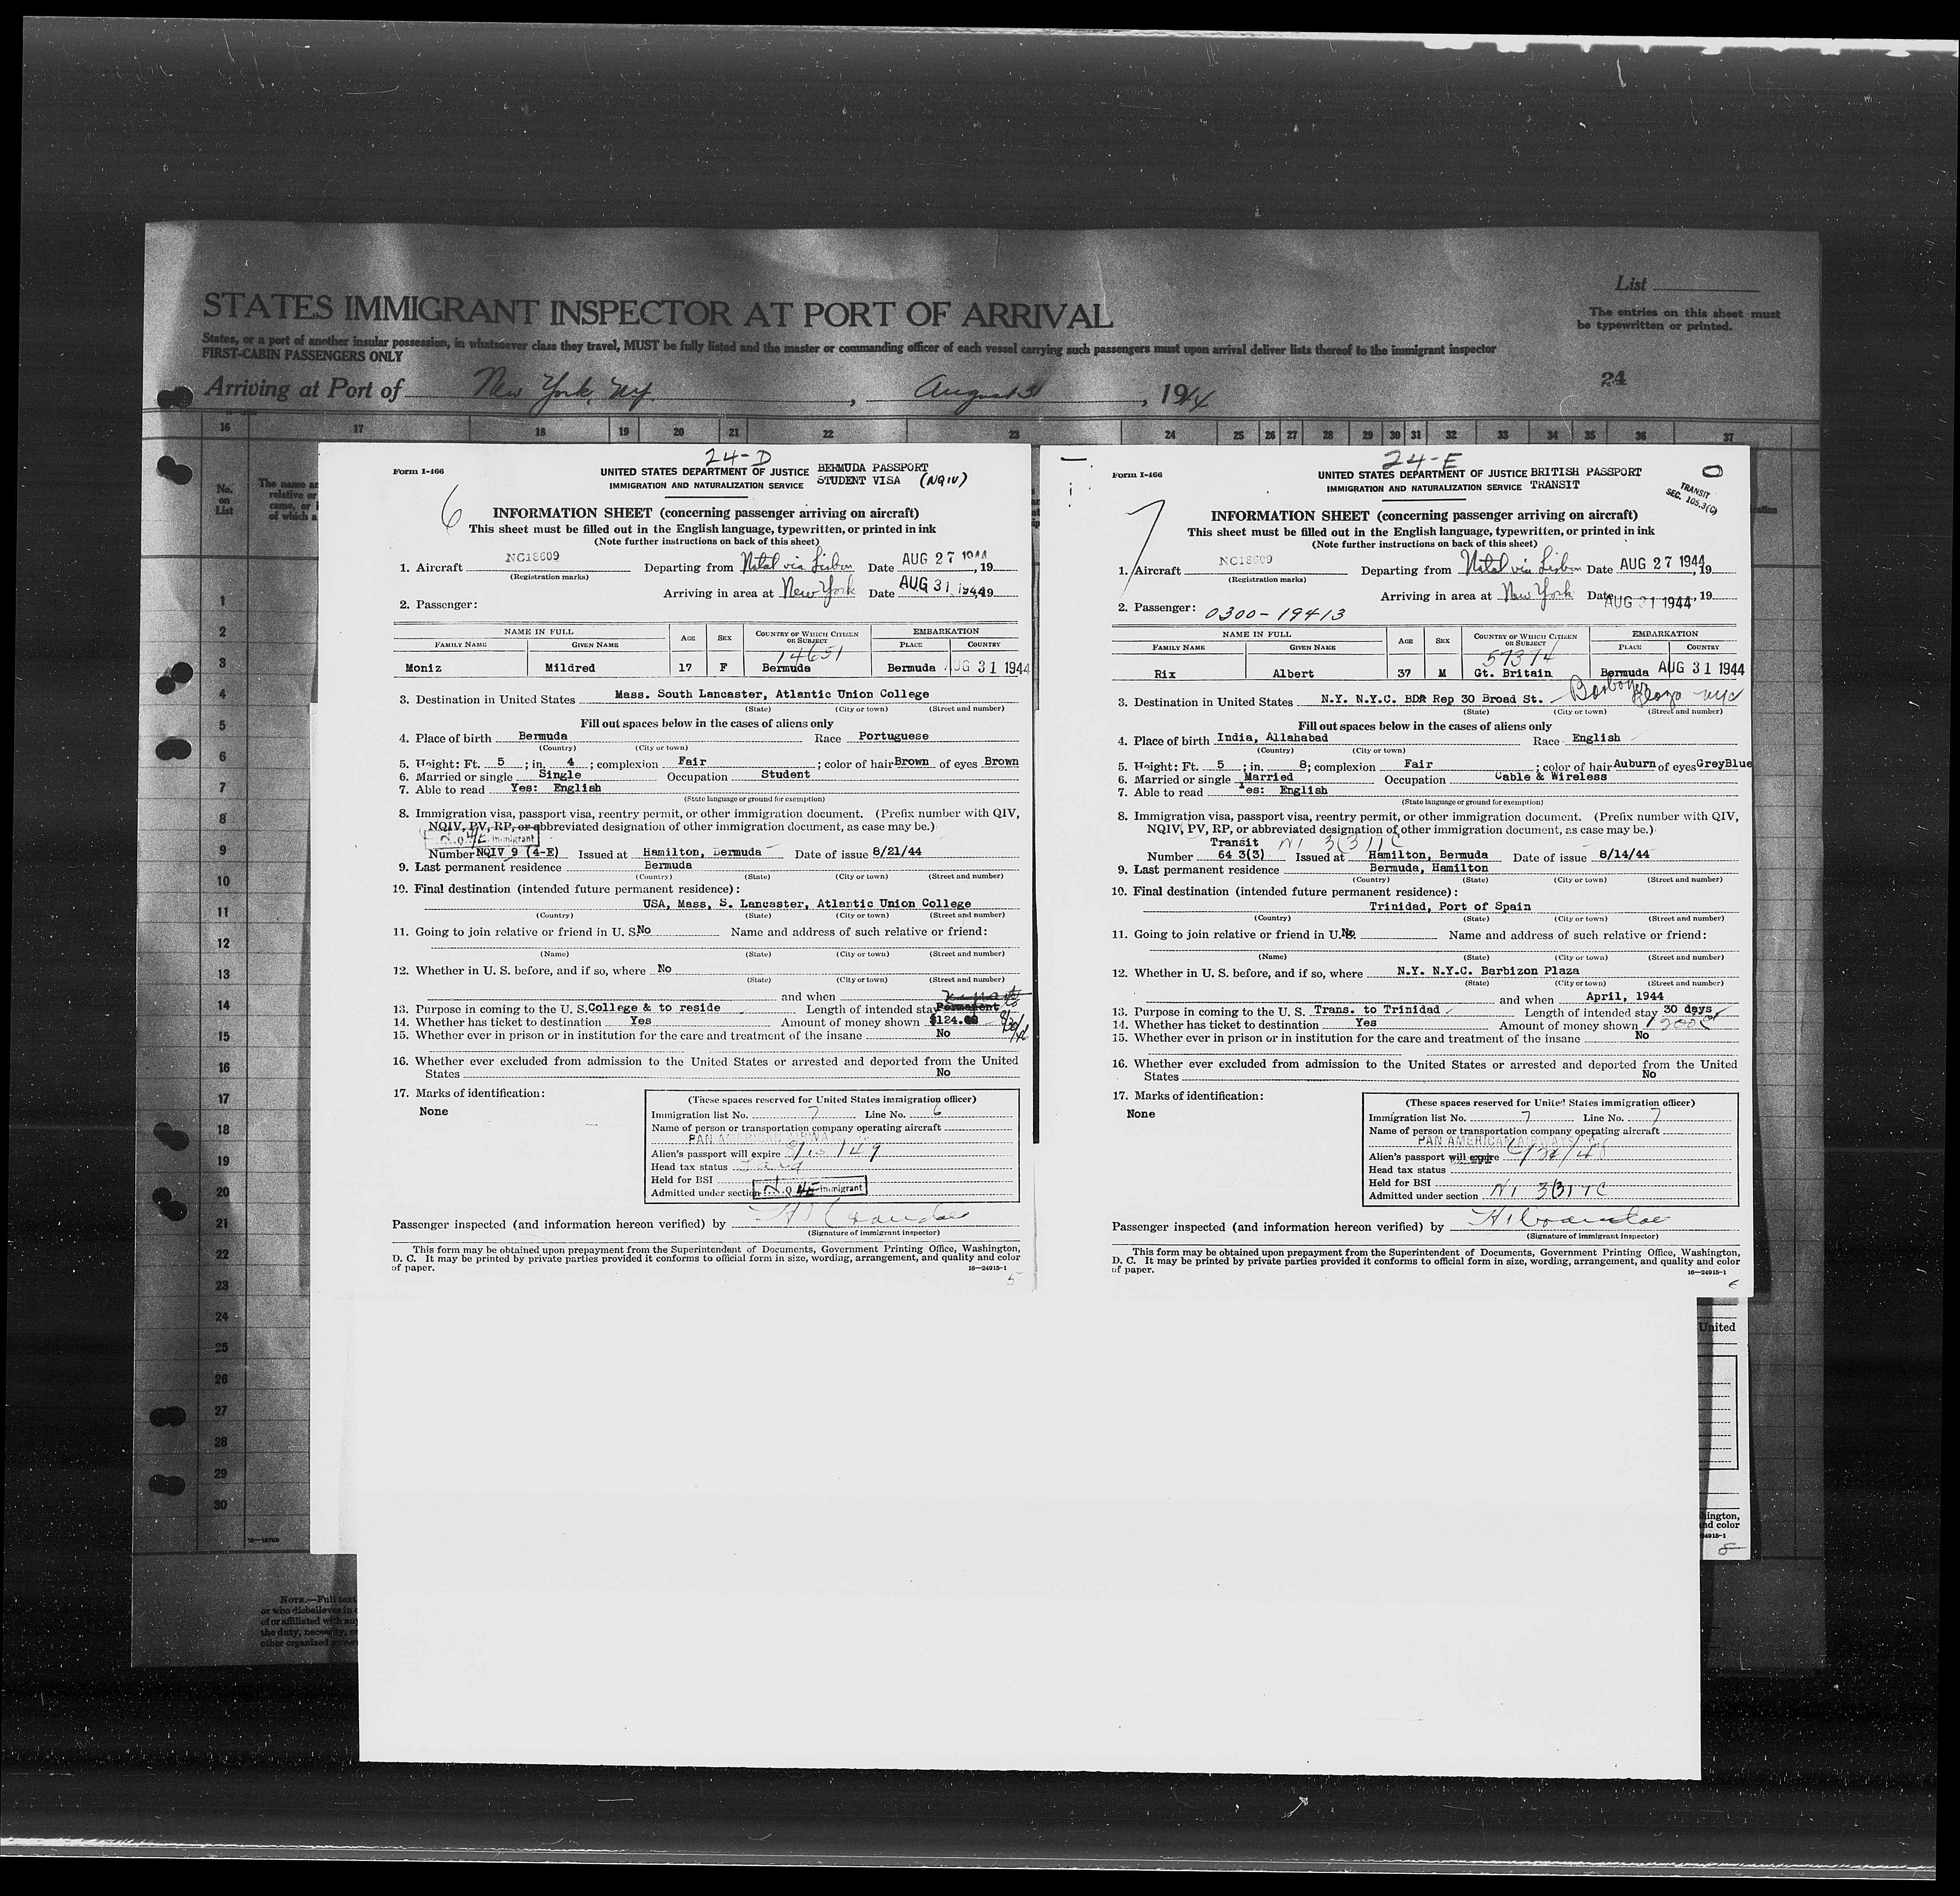 STATES IMMIGRANT INSPECTOR AT PORT OF ARRIVAL
List
The entries on this sheet must
be typewritten or printed.
States, or a port of another insular possession, in whatsoever class they travel, MUST be fully listed and the master or commanding officer of each vessel carrying such passengers must upon arrival deliver lists thereof to the immigrant inspector
FIRST-CABIN PASSENGERS ONLY
24
Arriving at Port of New York, NY. , August 31 , 1944
16 17 18 19 20 21 22 23 24 25 26 27 28 29 30 31 32 33 34 35 36 37
No.
on
List
1
2
3
4
5
6
7
8
9
10
11
12
13
14
15
16
17
18
19
20
21
22
23
24
25
26
27
28
29
30
24-D
Form I-466
UNITED STATES DEPARTMENT OF JUSTICE BERMUDA PASSPORT
IMMIGRATION AND NATURALIZATION SERVICE STUDENT VISA (NQIV)
6
INFORMATION SHEET (concerning passenger arriving on aircraft)
This sheet must be filled out in the English language, typewritten, or printed in ink
(Note further instructions on back of this sheet)
1. Aircraft NC18609 Departing from Natal via Lisbon Date AUG 27 1944, 19
(Registration marks)
Arriving in area at New York Date AUG 31 1944, 19
2. Passenger:
NAME IN FULL AGE SEX COUNTRY OF WHICH CITIZEN OR SUBJECT EMBARKATION
FAMILY NAME GIVEN NAME PLACE COUNTRY
14651
Moniz Mildred 17 F Bermuda Bermuda AUG 31 1944
3. Destination in United States Mass. South Lancaster, Atlantic Union College
(State) (City or town) (Street and number)
Fill out spaces below in the cases of aliens only
4. Place of birth Bermuda Race Portuguese
(Country) (City or town)
5. Height: Ft. 5 ; in. 4 ; complexion Fair ; color of hair Brown of eyes Brown
6. Married or single Single Occupation Student
7. Able to read Yes: English
(State language or ground for exemption)
8. Immigration visa, passport visa, reentry permit, or other immigration document. (Prefix number with QIV,
NQIV, PV, RP, or abbreviated designation of other immigration document, as case may be.)
Number NQIV 9 (4-E) Issued at Hamilton, Bermuda Date of issue 8/21/44
9. Last permanent residence Bermuda
(Country) (State) (City or town) (Street and number)
10. Final destination (intended future permanent residence):
USA, Mass, S. Lancaster, Atlantic Union College
(Country) (State) (City or town) (Street and number)
11. Going to join relative or friend in U. S. No Name and address of such relative or friend:
(Name) (State) (City or town) (Street and number)
12. Whether in U. S. before, and if so, where No
(State) (City or town) (Street and number)
and when
13. Purpose in coming to the U. S. College & to reside Length of intended stay Permanent
14. Whether has ticket to destination Yes Amount of money shown $124.00
15. Whether ever in prison or in institution for the care and treatment of the insane No
16. Whether ever excluded from admission to the United States or arrested and deported from the United
States No
17. Marks of identification:
None
(These spaces reserved for United States immigration officer)
Immigration list No. 7 Line No. 6
Name of person or transportation company operating aircraft
PAN AMERICAN AIRWAYS
Alien's passport will expire
Head tax status
Held for BSI
Admitted under section No 4E immigrant
Passenger inspected (and information hereon verified) by
(Signature of immigrant inspector)
This form may be obtained upon prepayment from the Superintendent of Documents, Government Printing Office, Washington,
D. C. It may be printed by private parties provided it conforms to official form in size, wording, arrangement, and quality and color
of paper.
16—24915-1
5
24-E
Form I-466
UNITED STATES DEPARTMENT OF JUSTICE BRITISH PASSPORT
IMMIGRATION AND NATURALIZATION SERVICE TRANSIT
TRANSIT
SEC. 105.3(C)
7
INFORMATION SHEET (concerning passenger arriving on aircraft)
This sheet must be filled out in the English language, typewritten, or printed in ink
(Note further instructions on back of this sheet)
1. Aircraft NC18609 Departing from Natal via Lisbon Date AUG 27 1944, 19
(Registration marks)
Arriving in area at New York Date AUG 31 1944, 19
2. Passenger: 0300-19413
NAME IN FULL AGE SEX COUNTRY OF WHICH CITIZEN OR SUBJECT EMBARKATION
FAMILY NAME GIVEN NAME PLACE COUNTRY
57374
Rix Albert 37 M Gt. Britain Bermuda AUG 31 1944
3. Destination in United States N.Y. N.Y.C. BDA Rep 30 Broad St. Barbizon Plaza nyc
(State) (City or town) (Street and number)
Fill out spaces below in the cases of aliens only
4. Place of birth India, Allahabad Race English
(Country) (City or town)
5. Height: Ft. 5 ; in. 8; complexion Fair ; color of hair Auburn of eyes GreyBlue
6. Married or single Married Occupation Cable & Wireless
7. Able to read Yes: English
(State language or ground for exemption)
8. Immigration visa, passport visa, reentry permit, or other immigration document. (Prefix number with QIV,
NQIV, PV, RP, or abbreviated designation of other immigration document, as case may be.)
Transit NI 3(3) TC
Number 64 3(3) Issued at Hamilton, Bermuda Date of issue 8/14/44
9. Last permanent residence Bermuda, Hamilton
(Country) (State) (City or town) (Street and number)
10. Final destination (intended future permanent residence):
Trinidad, Port of Spain
(Country) (State) (City or town) (Street and number)
11. Going to join relative or friend in U. S. No Name and address of such relative or friend:
(Name) (State) (City or town) (Street and number)
12. Whether in U. S. before, and if so, where N.Y. N.Y.C. Barbizon Plaza
(State) (City or town) (Street and number)
and when April, 1944
13. Purpose in coming to the U. S. Trans. to Trinidad Length of intended stay 30 days
14. Whether has ticket to destination Yes Amount of money shown
15. Whether ever in prison or in institution for the care and treatment of the insane No
16. Whether ever excluded from admission to the United States or arrested and deported from the United
States No
17. Marks of identification:
None
(These spaces reserved for United States immigration officer)
Immigration list No. 7 Line No. 7
Name of person or transportation company operating aircraft
PAN AMERICAN AIRWAYS
Alien's passport will expire
Head tax status
Held for BSI
Admitted under section NI 3(3) TC
Passenger inspected (and information hereon verified) by
(Signature of immigrant inspector)
This form may be obtained upon prepayment from the Superintendent of Documents, Government Printing Office, Washington,
D. C. It may be printed by private parties provided it conforms to official form in size, wording, arrangement, and quality and color
of paper.
16—24915-1
6
United
8
NOTE.—Full text
or who disbelieves in
of or affiliated with any
the duty, necessity, or
other organized